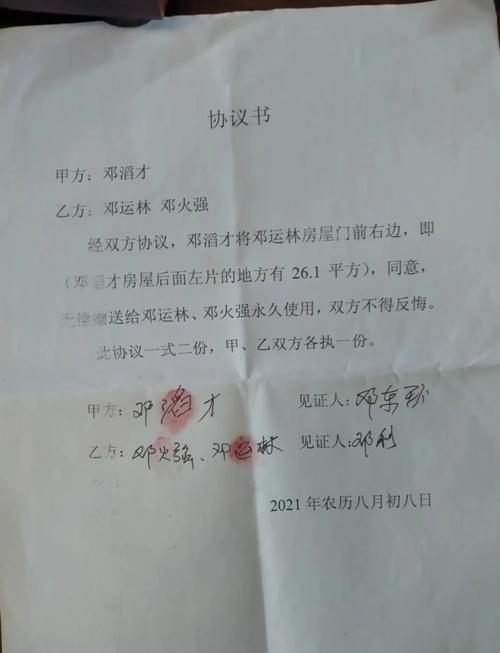 协议书
甲方：邓滔才
乙方：邓运林 邓火强
经双方协议，邓滔才将邓运林房屋门前右边，即
（邓滔才房屋后面左片的地方有 26.1 平方），同意，
无偿赠送给邓运林、邓火强永久使用，双方不得反悔。
此协议一式二份，甲、乙双方各执一份。
甲方：邓滔才 见证人：邓东
乙方：邓火强、邓运林 见证人：邓利
2021 年农历八月初八日